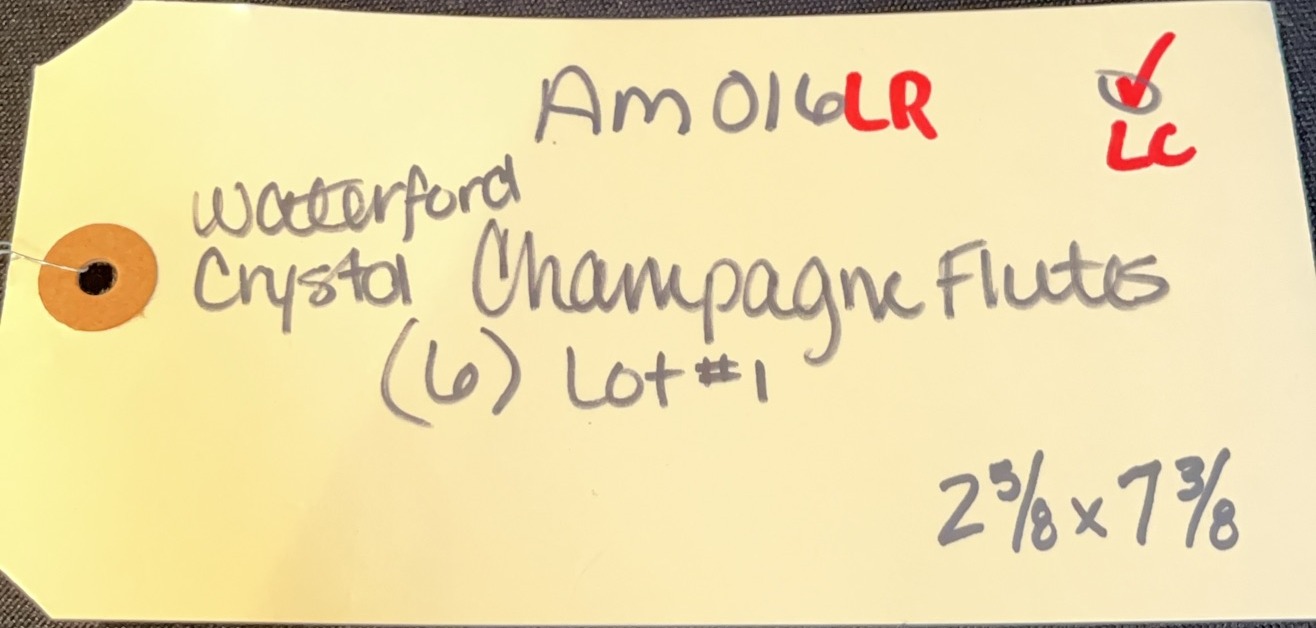 Am016LR ✓
LC
Waterford
Crystal Champagne Flutes
(6) Lot #1
2 5/8 x 7 3/8